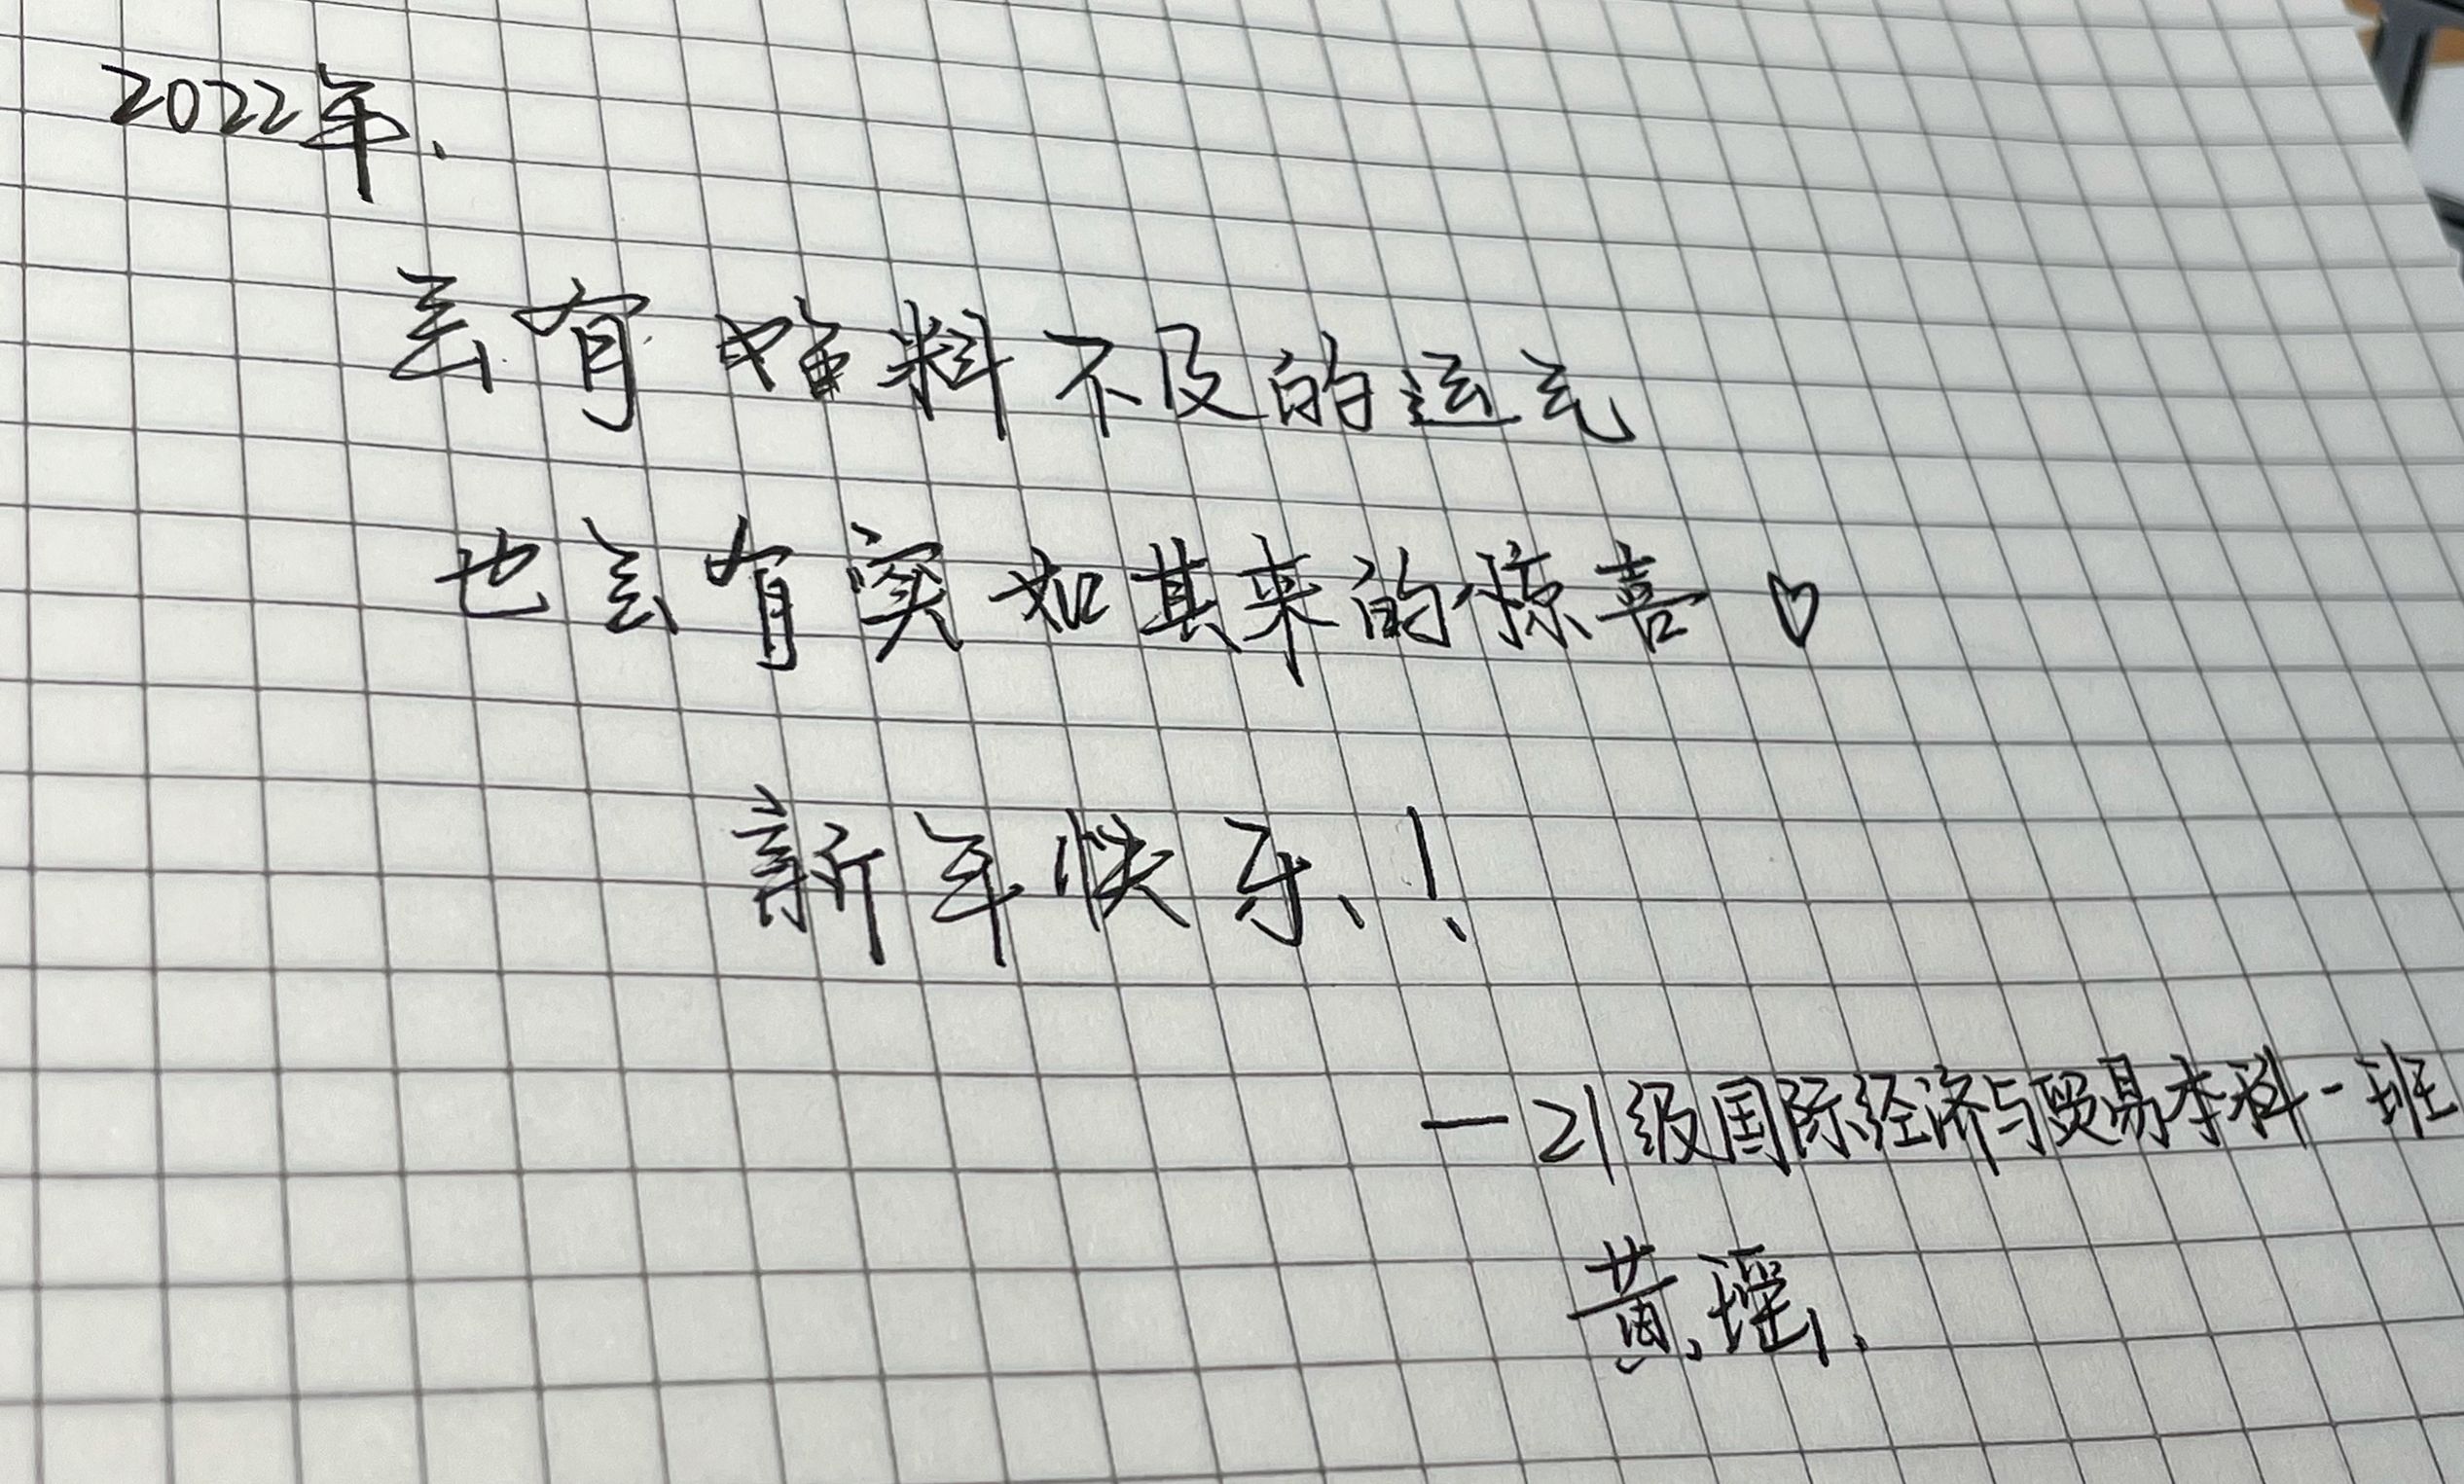 2022年、
会有始料不及的运气
也会有突如其来的惊喜♡
新年快乐!
—21级国际经济与贸易本科一班
黄瑶.